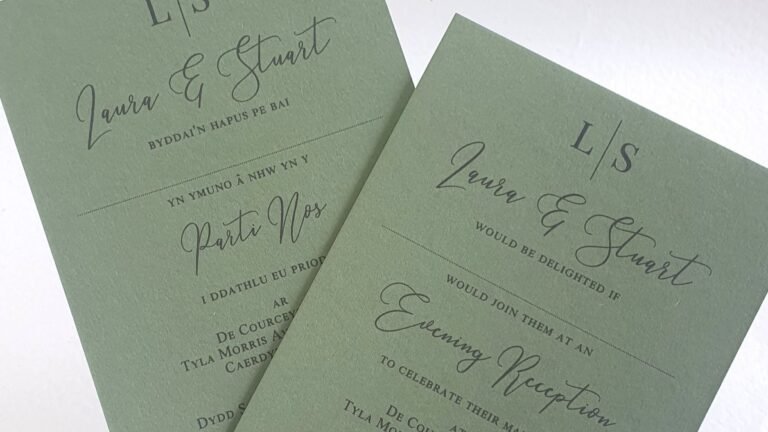 L|S
Laura & Stuart
BYDDAI'N HAPUS PE BAI
YN YMUNO Â NHW YN Y
Parti Nos
I DDATHLU EU PRIOD
AR
DE COURCEY
TYLA MORRIS AV
CAERDY
DYDD S
L|S
Laura & Stuart
WOULD BE DELIGHTED IF
WOULD JOIN THEM AT AN
Evening Reception
TO CELEBRATE THEIR MA
AT
DE COU
TYLA MORRIS